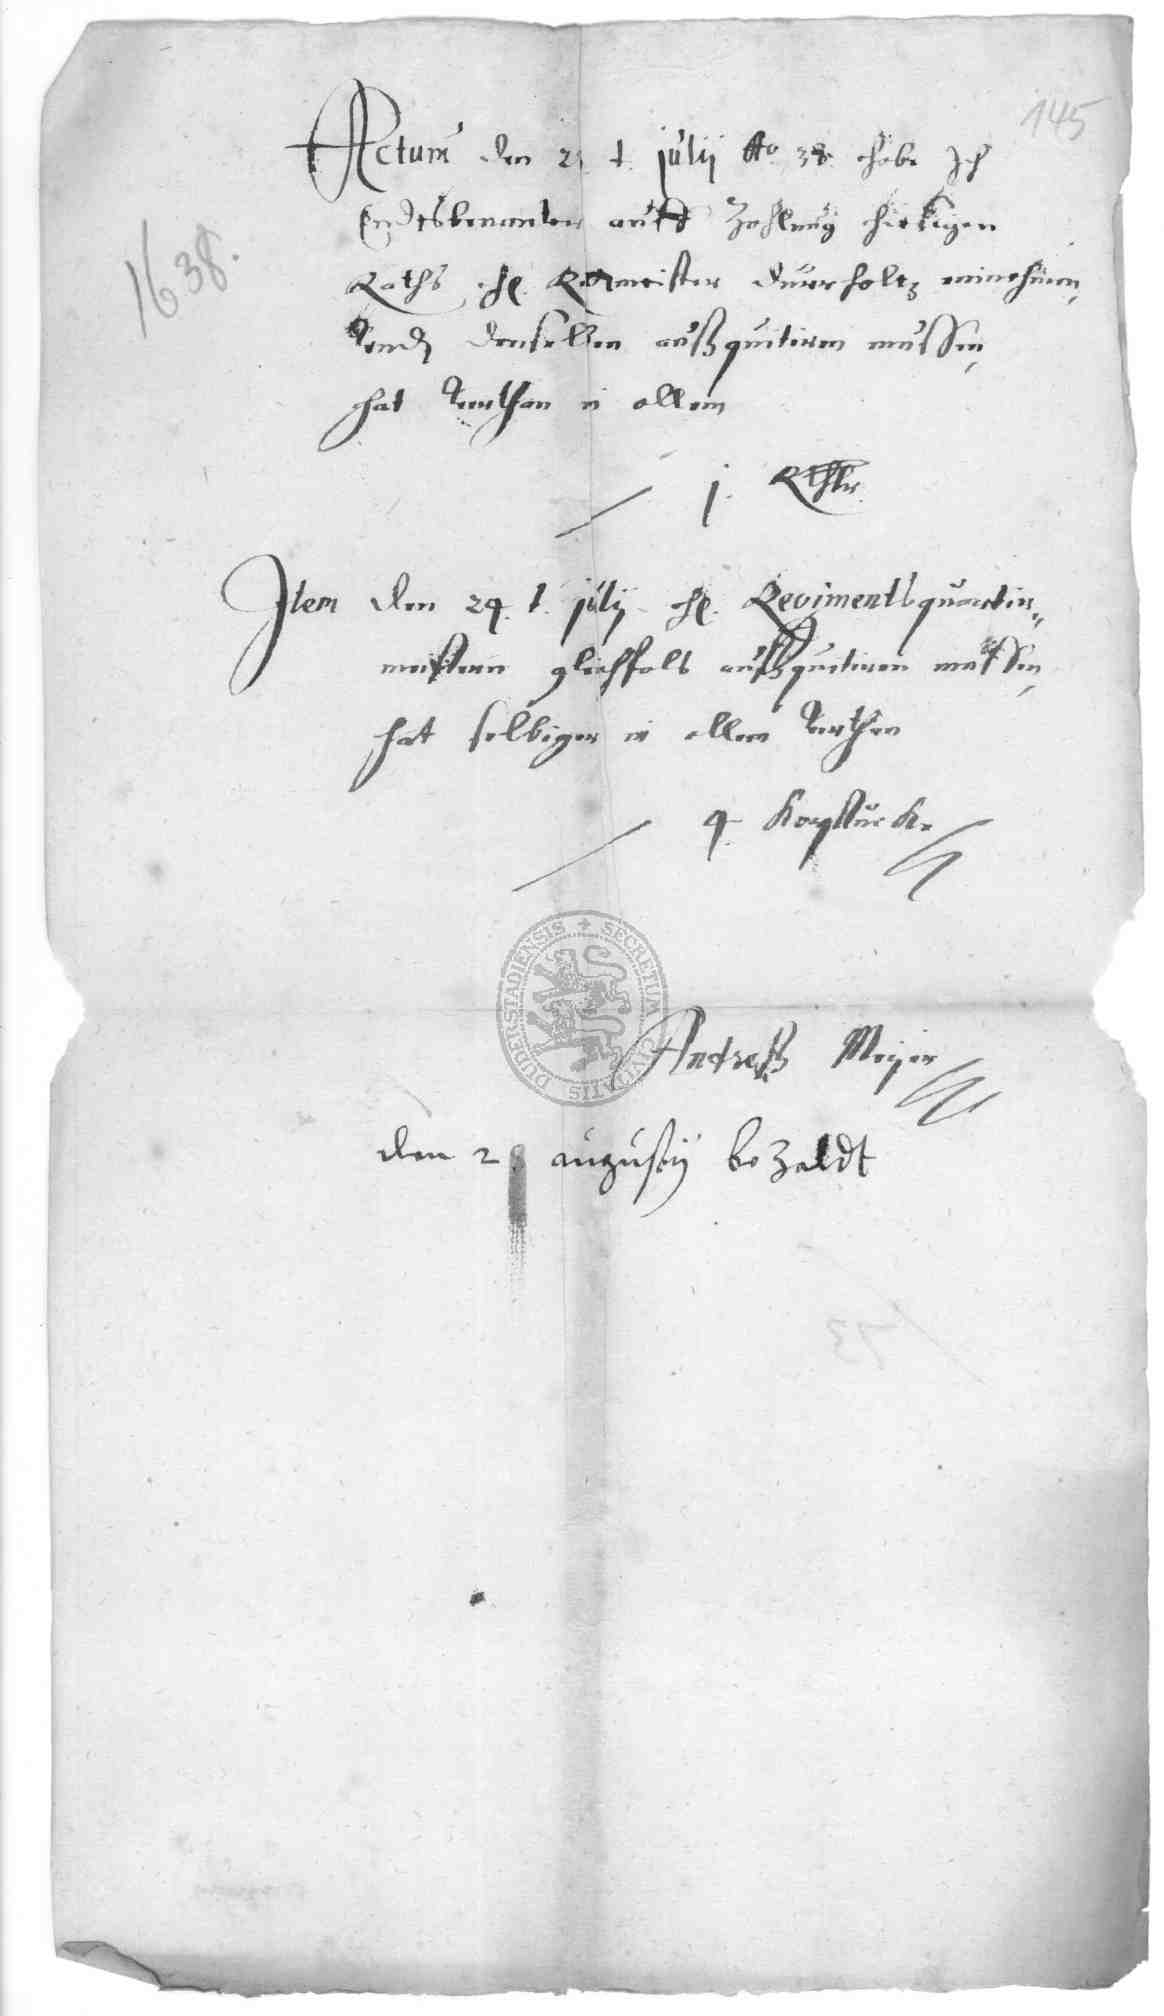 145
1638.
Actum den 21 t. julij Ao. 38. habe Ich
Endtsbenanter auff Zahlung hiesigen
Raths h. Ritmeister Duirholtz
denselben außquitiren mussen,
hat verthan in allem
j. Rthlr.
Item den 24. t. julij h. Regimentsquartir-
meistern gleichfals außquitiren mussen,
hat selbiger in allem verthan
4. Kopfstücke
SECRETUM CIVITATIS DUDERSTADIENSIS
Andreaß Meijer
den 2 augustij bezaldt